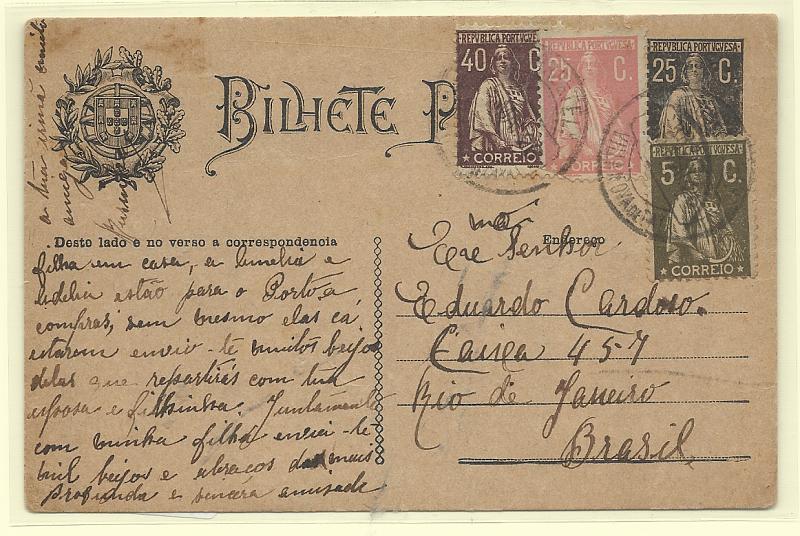 REPVBLICA PORTVGVESA
40 C.
CORREIO
REPVBLICA PORTVGVESA
25 C.
CORREIO
REPVBLICA PORTVGVESA
25 C.
REPVBLICA PORTVGVESA
5 C.
CORREIO
BILHETE P
Desto lado e no verso a correspondencia
Endereço
filha em casa, a Amelia e
Adelia estão para o Porto a
compras, sem mesmo elas cá
estarem envio-te muitos beijos
delas que repartirás com tua
esposa e filhinha. Juntamente
com minha filha enviei-te
mil beijos e abraços da mais
profunda e sincera amisade
a tua irmã muito
amiga
Exmo Senhor
Eduardo Cardoso.
Caixa 457
Rio de Janeiro
Brasil